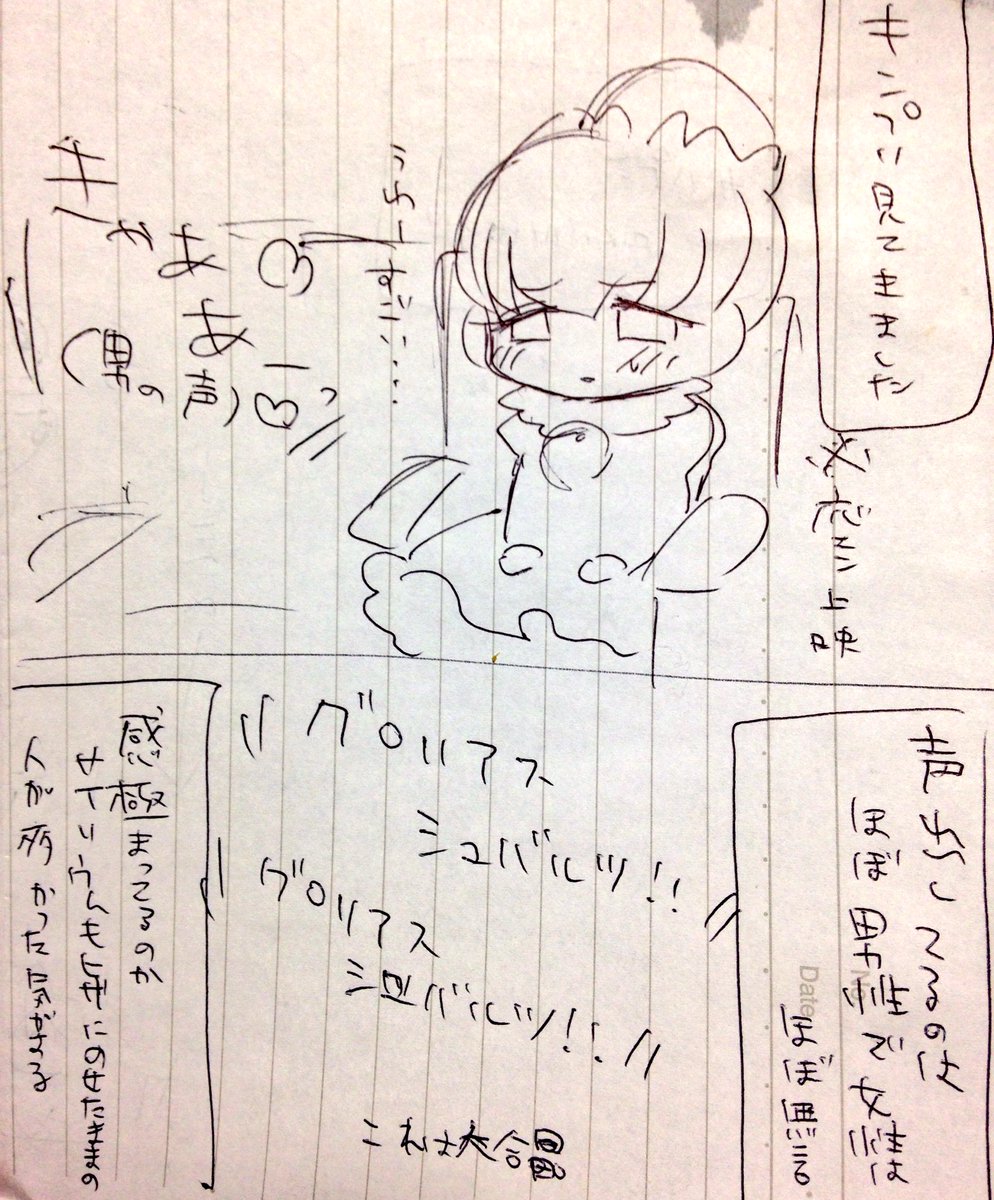 キンプリ見てきました
応援上映
うちーすごい....
きゃああああ♡♡
(男の声)
声出してるのは
ほぼ男性で女性は
ほぼ黙る
グロリアス
シュバルツ!!
グロリアス
シュバルツ!!
これは大合唱
感極まってるのか
サイリウムも床にのせたままの
人が多かった気がする
No.
Date